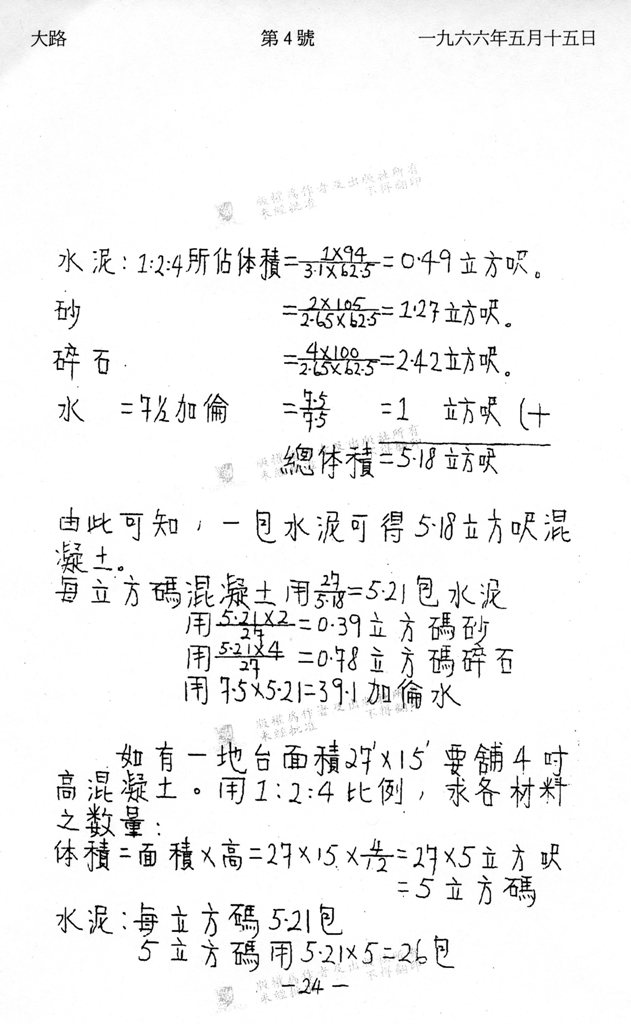 大路 第4號 一九六六年五月十五日
版權為作者及出版社所有
未經批准 不得翻印
水泥:1:2:4所佔体積=1×94/3.1×62.5=0.49立方呎。
砂 =2×105/2.65×62.5=1.27立方呎。
碎石 =4×100/2.65×62.5=2.42立方呎。
水 =7½加倫 =7.5/7.5 =1 立方呎(+
總体積=5.18立方呎
由此可知,一包水泥可得5.18立方呎混
凝土。
每立方碼混凝土用27/5.18=5.21包水泥
用5.21×2/27=0.39立方碼砂
用5.21×4/27=0.78立方碼碎石
用7.5×5.21=39.1加倫水
版權為作者及出版社所有
未經批准 不得翻印
如有一地台面積27'×15'要舖4吋
高混凝土。用1:2:4比例,求各材料
之數量:
体積=面積×高=27×15×4/12=27×5立方呎
=5立方碼
水泥:每立方碼5.21包
5立方碼用5.21×5=26包
版權為作者及出版社所有
未經批准
-24-